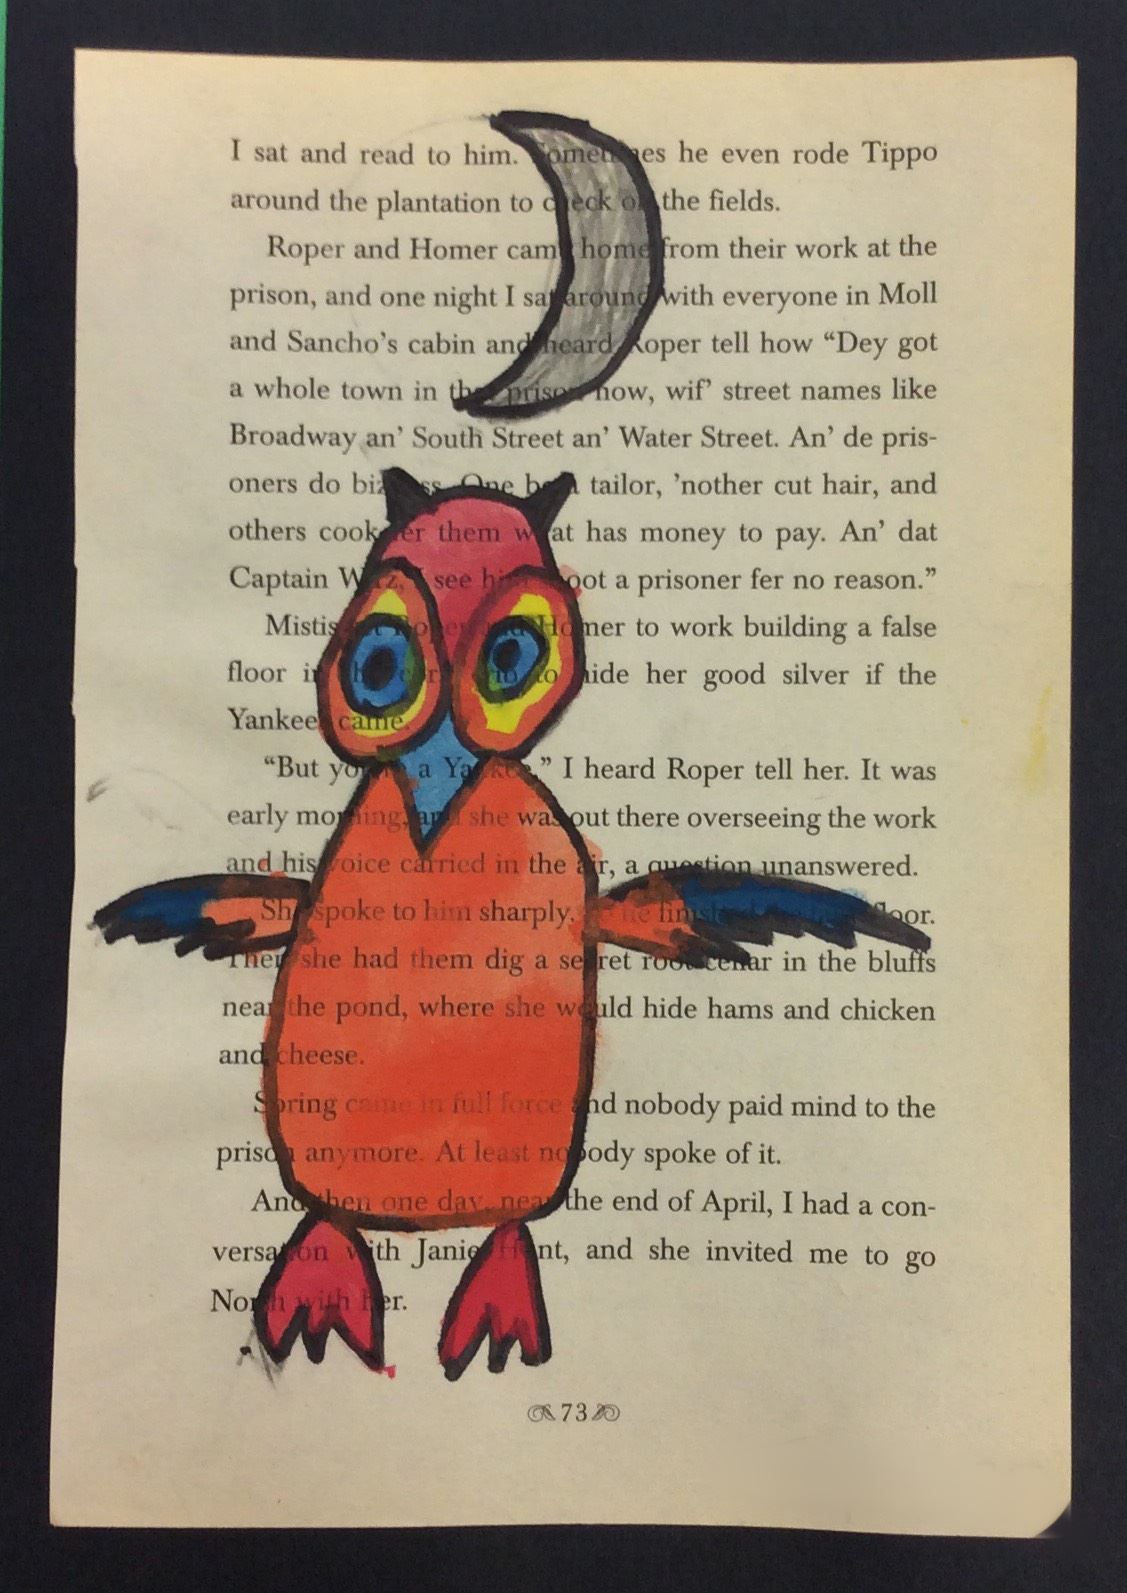 I sat and read to him. Sometimes he even rode Tippo
around the plantation to check on the fields.
Roper and Homer came home from their work at the
prison, and one night I sat around with everyone in Moll
and Sancho’s cabin and heard Roper tell how “Dey got
a whole town in that prison now, wif’ street names like
Broadway an’ South Street an’ Water Street. An’ de pris-
oners do bizness. One be a tailor, ’nother cut hair, and
others cook fer them what has money to pay. An’ dat
Captain Wirz, I see him shoot a prisoner fer no reason.”
Mistis set Roper and Homer to work building a false
floor in the to hide her good silver if the
Yankees came.
“But you’re a Yankee,” I heard Roper tell her. It was
early morning, and she was out there overseeing the work
and his voice carried in the air, a question unanswered.
She spoke to him sharply, he finished floor.
Then she had them dig a secret root cellar in the bluffs
near the pond, where she would hide hams and chicken
and cheese.
Spring came in full force and nobody paid mind to the
prison anymore. At least nobody spoke of it.
And then one day, near the end of April, I had a con-
versation with Janie Hunt, and she invited me to go
North with her.
73